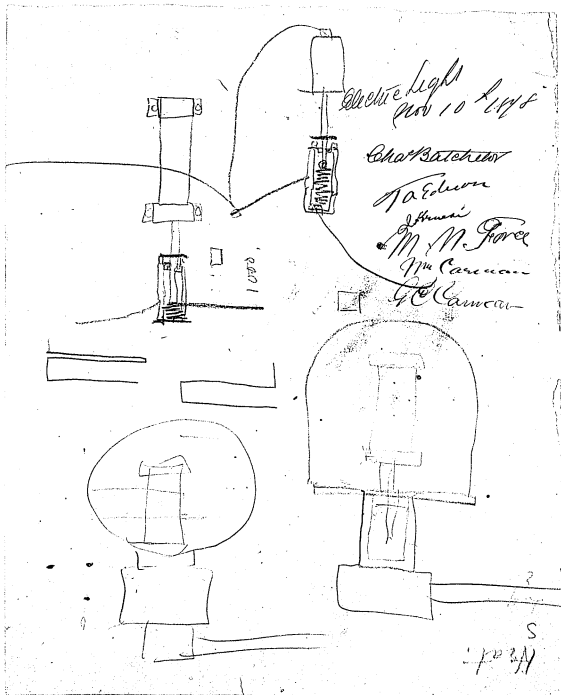 Electric Light
Nov 10th 1878
Chas Batchelor
T a Edison
M. N. Force
Wm Carman
G E Carman